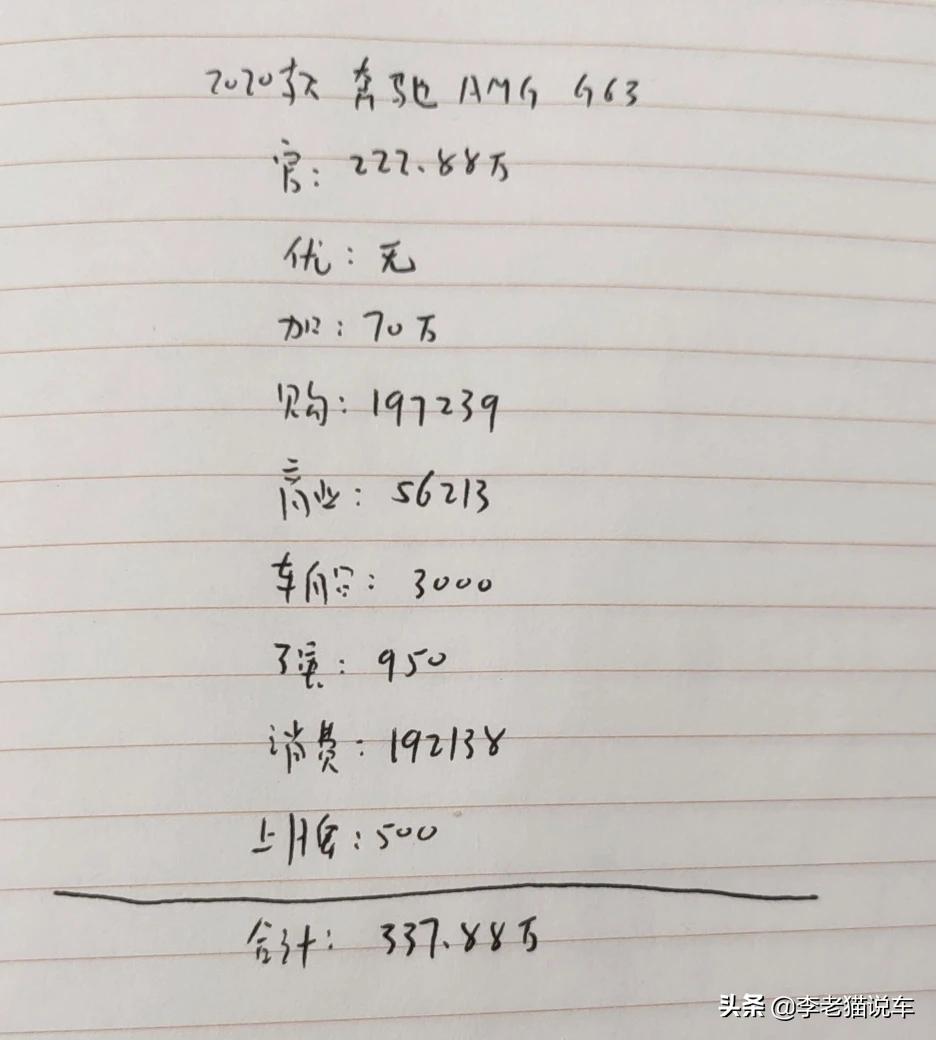 2020款 奔驰 AMG G63
官: 222.88万
优: 无
加: 70万
购: 197239
商业: 56213
车船: 3000
强: 950
消费: 192138
上牌: 500
合计: 337.88万
头条 @李老猫说车